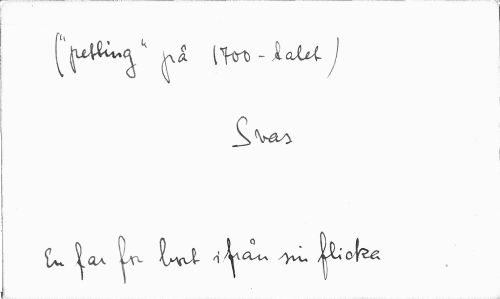 ("petting" på 1700-talet)
Svas
En far for bort ifrån sin flicka